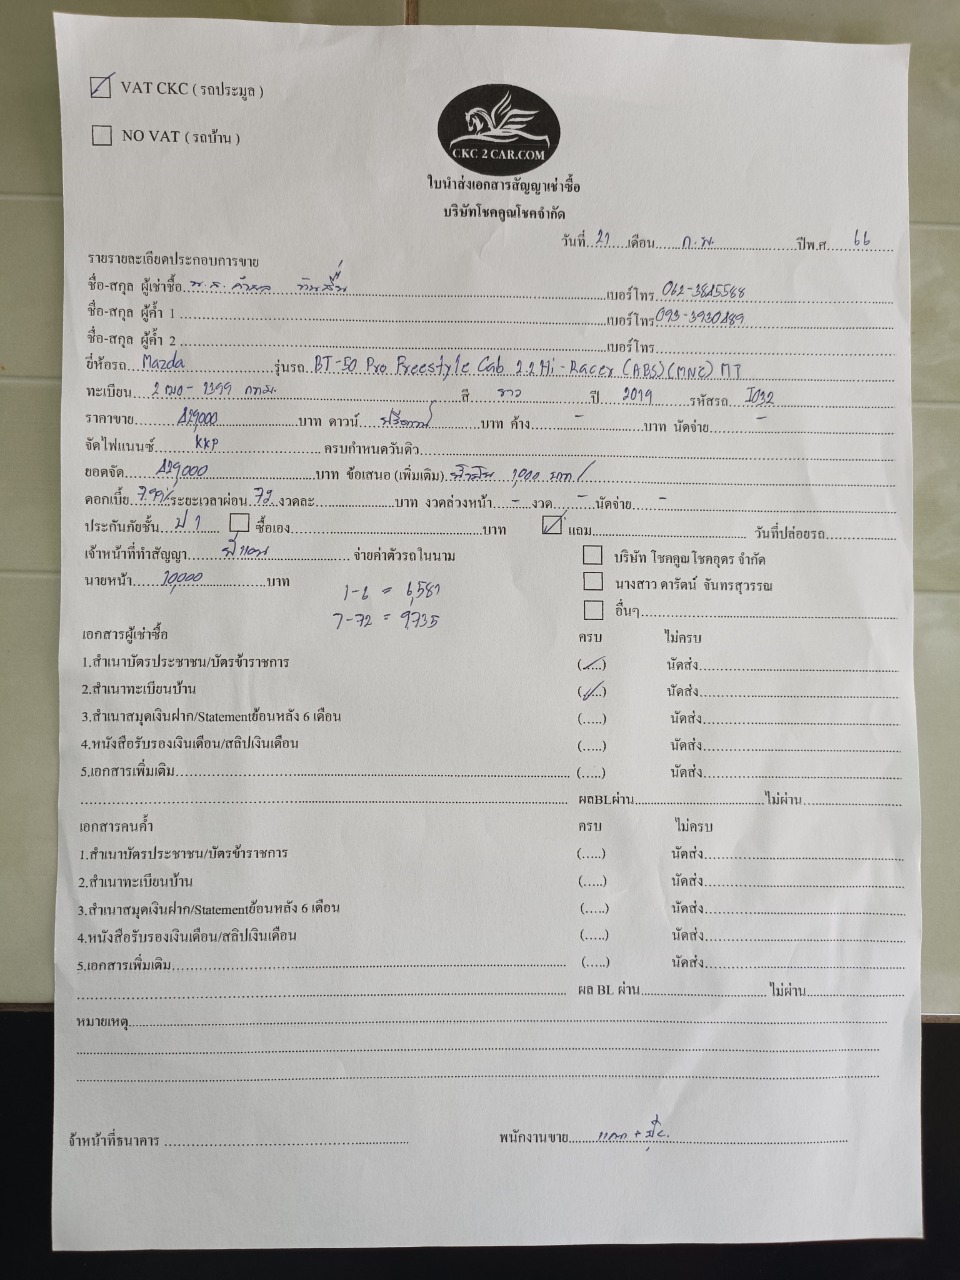 VAT CKC ( รถประมูล )
NO VAT ( รถบ้าน )
CKC 2 CAR.COM
ใบนำส่งเอกสารสัญญาเช่าซื้อ
บริษัทโชคคูณโชคจำกัด
วันที่ 21 เดือน ก.พ. ปีพ.ศ. 66
รายรายละเอียดประกอบการขาย
ชื่อ-สกุล ผู้เช่าซื้อ น.ส. เบอร์โทร 062-3815588
ชื่อ-สกุล ผู้ค้ำ 1 เบอร์โทร 093-3930189
ชื่อ-สกุล ผู้ค้ำ 2 เบอร์โทร
ยี่ห้อรถ Mazda รุ่นรถ BT-50 Pro Freestyle Cab 2.2 Hi-Racer (ABS) (MNC) MT
ทะเบียน 2 ฒถ-1399 กทม. สี ขาว ปี 2019 รหัสรถ I032
ราคาขาย 429,000 บาท ดาวน์ ฟรีดาวน์ บาท ค้าง - บาท นัดจ่าย -
จัดไฟแนนซ์ KKP ครบกำหนดวันดิว
ยอดจัด 429,000 บาท ข้อเสนอ (เพิ่มเติม) น้ำมัน 1,000 บาท /
ดอกเบี้ย 7.99% ระยะเวลาผ่อน 72 งวดละ บาท งวดล่วงหน้า - งวด - นัดจ่าย -
ประกันภัยชั้น ป 1 ซื้อเอง บาท แถม วันที่ปล่อยรถ
เจ้าหน้าที่ทำสัญญา จ่ายค่าตัวรถในนาม บริษัท โชคคูณโชคอุดร จำกัด
นายหน้า 10,000 บาท นางสาว ดารัตน์ จันทรสุวรรณ
1-6 = 6,581
7-72 = 9,735
อื่นๆ
เอกสารผู้เช่าซื้อ ครบ ไม่ครบ
1.สำเนาบัตรประชาชน/บัตรข้าราชการ (.....) นัดส่ง
2.สำเนาทะเบียนบ้าน (.....) นัดส่ง
3.สำเนาสมุดเงินฝาก/Statementย้อนหลัง 6 เดือน (.....) นัดส่ง
4.หนังสือรับรองเงินเดือน/สลิปเงินเดือน (.....) นัดส่ง
5.เอกสารเพิ่มเติม (.....) นัดส่ง
ผลBLผ่าน ไม่ผ่าน
เอกสารคนค้ำ ครบ ไม่ครบ
1.สำเนาบัตรประชาชน/บัตรข้าราชการ (.....) นัดส่ง
2.สำเนาทะเบียนบ้าน (.....) นัดส่ง
3.สำเนาสมุดเงินฝาก/Statementย้อนหลัง 6 เดือน (.....) นัดส่ง
4.หนังสือรับรองเงินเดือน/สลิปเงินเดือน (.....) นัดส่ง
5.เอกสารเพิ่มเติม (.....) นัดส่ง
ผล BL ผ่าน ไม่ผ่าน
หมายเหตุ
จ้าหน้าที่ธนาคาร พนักงานขาย